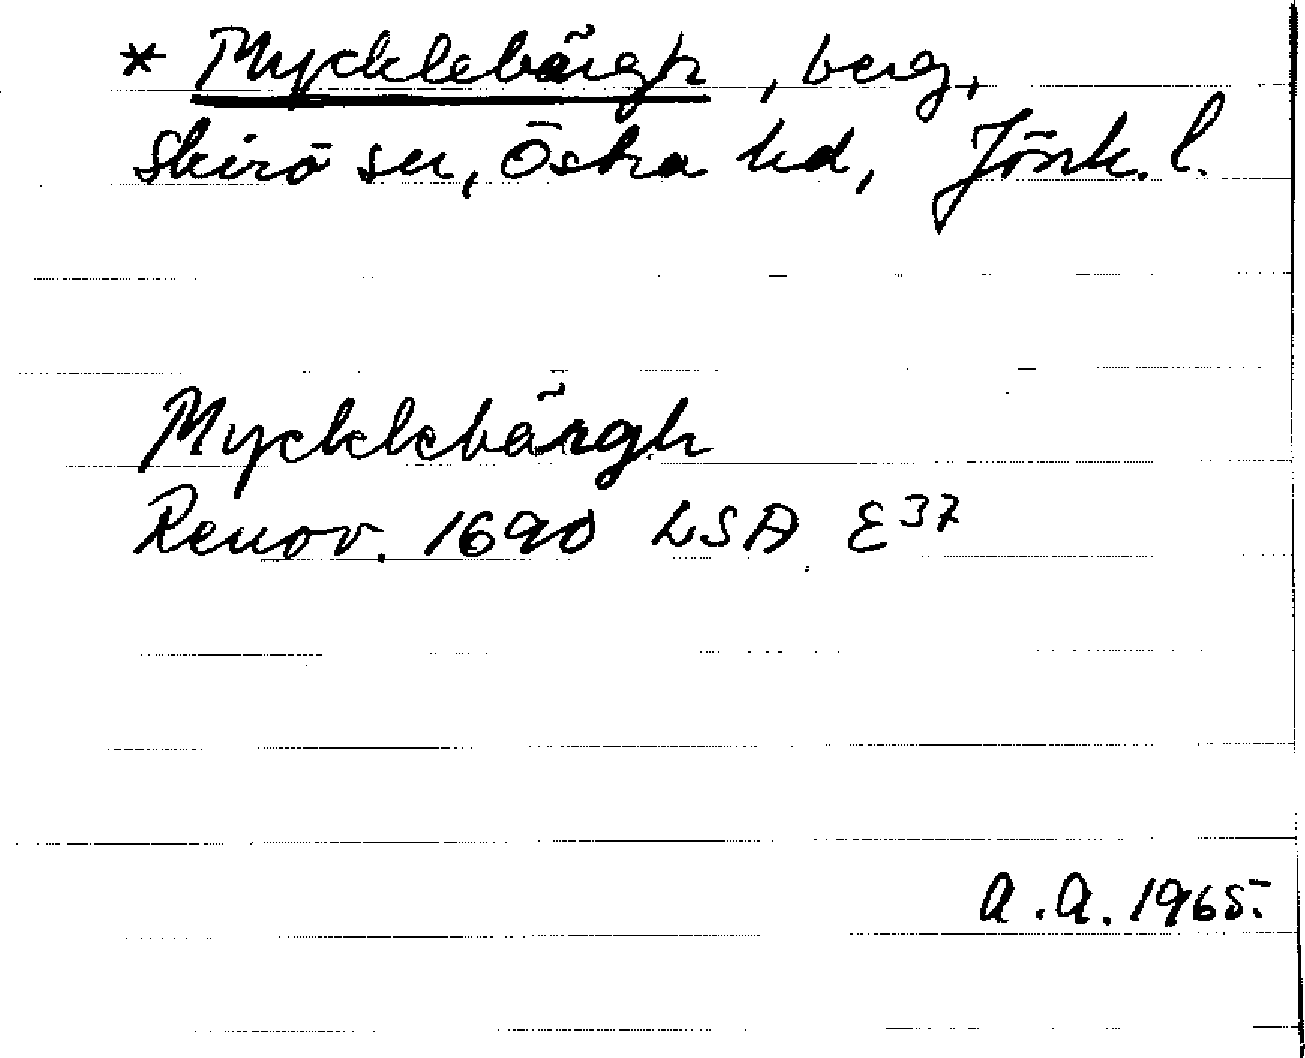 * Mycklebärgh, berg,
Skirö sn, Östra hd, Jönk. l.
Mycklebärgh
Renov. 1690 LSA E37
A.A. 1965.